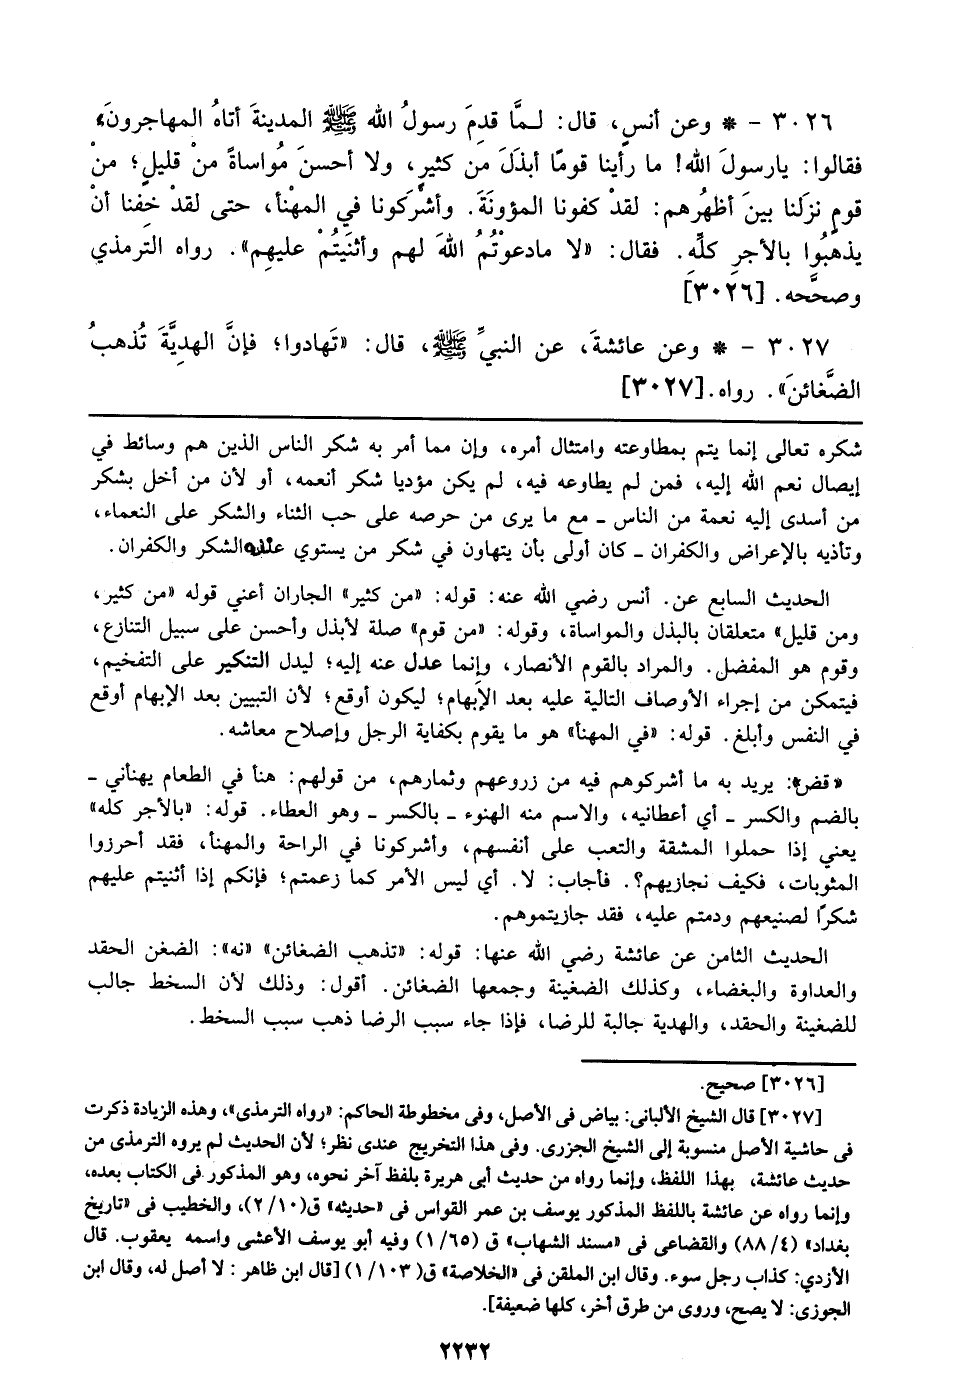 ٣٠٢٦ - * وعن أنسٍ، قال: لـمَّا قدِمَ رسولُ الله ﷺ المدينةَ أتاهُ المهاجرونَ،
فقالوا: يارسولَ الله! ما رأينا قومًا أبذَلَ من كثيرٍ، ولا أحسنَ مُواساةً منْ قليلٍ؛ منْ
قومٍ نزَلنا بينَ أظهُرِهم: لقدْ كفونا المؤونَةَ. وأشرَكونا في المهْنأ، حتى لقدْ خِفنا أنْ
يذهبُوا بالأجرِ كلِّه. فقال: «لا مادعوْتُمُ اللهَ لهم وأثنَيتُمْ عليهِم». رواه الترمذي
وصحَّحه. [٣٠٢٦]
٣٠٢٧ - * وعن عائشةَ، عن النبيِّ ﷺ، قال: «تَهادوا؛ فإنَّ الهديَّةَ تُذهبُ
الضَّغائنَ». رواه. [٣٠٢٧]
شكره تعالى إنما يتم بمطاوعته وامتثال أمره، وإن مما أمر به شكر الناس الذين هم وسائط في
إيصال نعم الله إليه، فمن لم يطاوعه فيه، لم يكن مؤديا شكر أنعمه، أو لأن من أخل بشكر
من أسدى إليه نعمة من الناس ـ مع ما يرى من حرصه على حب الثناء والشكر على النعماء،
وتأذيه بالإعراض والكفران ـ كان أولى بأن يتهاون في شكر من يستوي عنده الشكر والكفران.
الحديث السابع عن. أنس رضي الله عنه: قوله: «من كثير» الجاران أعني قوله «من كثير،
ومن قليل» متعلقان بالبذل والمواساة، وقوله: «من قوم» صلة لأبذل وأحسن على سبيل التنازع،
وقوم هو المفضل. والمراد بالقوم الأنصار، وإنما عدل عنه إليه؛ ليدل التنكير على التفخيم،
فيتمكن من إجراء الأوصاف التالية عليه بعد الإبهام؛ ليكون أوقع؛ لأن التبيين بعد الإبهام أوقع
في النفس وأبلغ. قوله: «في المهنأ» هو ما يقوم بكفاية الرجل وإصلاح معاشه.
«قض»: يريد به ما أشركوهم فيه من زروعهم وثمارهم، من قولهم: هنأ في الطعام يهنأني ـ
بالضم والكسر ـ أي أعطانيه، والاسم منه الهنوء ـ بالكسر ـ وهو العطاء. قوله: «بالأجر كله»
يعني إذا حملوا المشقة والتعب على أنفسهم، وأشركونا في الراحة والمهنأ، فقد أحرزوا
المثوبات، فكيف نجازيهم؟. فأجاب: لا. أي ليس الأمر كما زعمتم؛ فإنكم إذا أثنيتم عليهم
شكرًا لصنيعهم ودمتم عليه، فقد جازيتموهم.
الحديث الثامن عن عائشة رضي الله عنها: قوله: «تذهب الضغائن» «نه»: الضغن الحقد
والعداوة والبغضاء، وكذلك الضغينة وجمعها الضغائن. أقول: وذلك لأن السخط جالب
للضغينة والحقد، والهدية جالبة للرضا، فإذا جاء سبب الرضا ذهب سبب السخط.
[٣٠٢٦] صحيح.
[٣٠٢٧] قال الشيخ الألبانى: بياض فى الأصل، وفى مخطوطة الحاكم: «رواه الترمذى»، وهذه الزيادة ذكرت
فى حاشية الأصل منسوبة إلى الشيخ الجزرى. وفى هذا التخريج عندى نظر؛ لأن الحديث لم يروه الترمذى من
حديث عائشة، بهذا اللفظ، وإنما رواه من حديث أبى هريرة بلفظ آخر نحوه، وهو المذكور فى الكتاب بعده،
وإنما رواه عن عائشة باللفظ المذكور يوسف بن عمر القواس فى «حديثه» ق(١٠/ ٢)، والخطيب فى «تاريخ
بغداد» (٤/ ٨٨) والقضاعى فى «مسند الشهاب» ق (٦٥/ ١) وفيه أبو يوسف الأعشى واسمه يعقوب. قال
الأزدي: كذاب رجل سوء. وقال ابن الملقن فى «الخلاصة» ق( ١٠٣/ ١) [قال ابن طاهر : لا أصل له، وقال ابن
الجوزى: لا يصح، وروى من طرق أخر، كلها ضعيفة].
٢٢٣٢